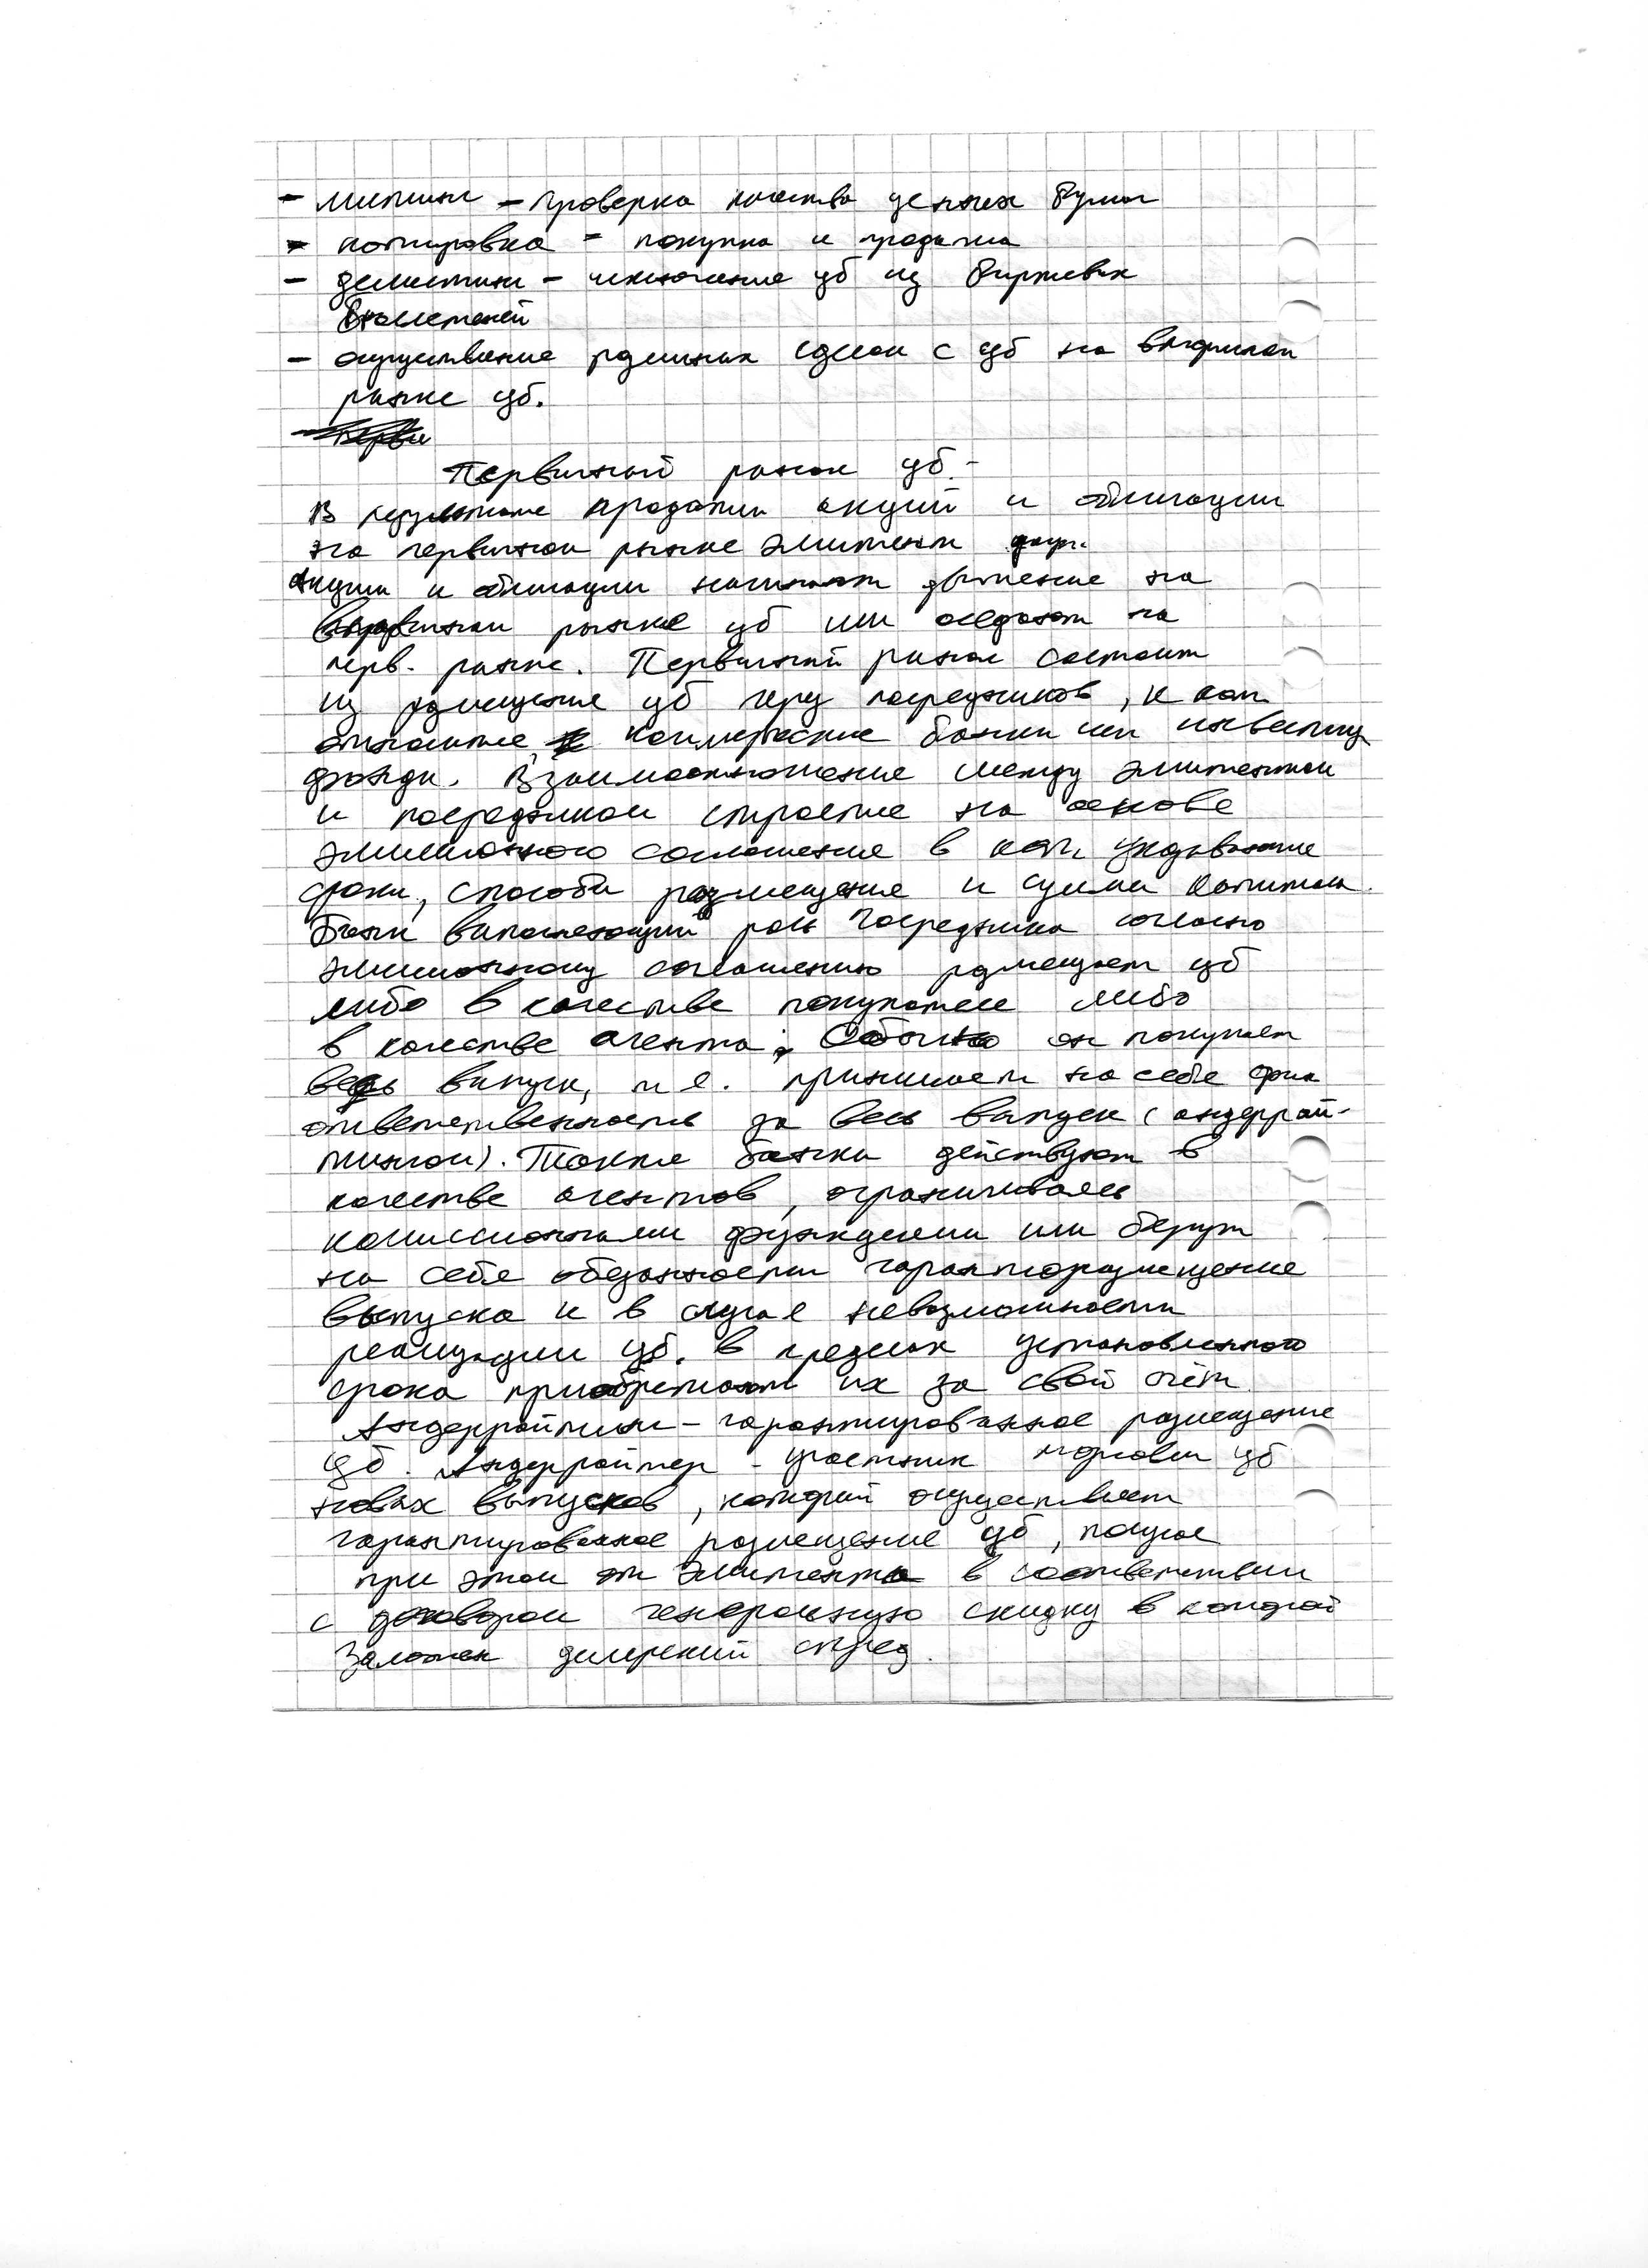 - листинг - проверка качества ценных бумаг
- котировка - покупка и продажа
- делистинг - исключение цб из биржевых
бюллетеней
- осуществление различных сделок с цб на вторичном
рынке цб.
Первичный рынок цб -
В результате продажи акций и облигации
на первичном рынке эмитент
Акции и облигации начинают движение на
рынке цб или оседают на
перв. рынке. Первичный рынок состоит
из размещения цб через посредников, к кот.
относятся коммерческие банки или инвестиц
фонды. Взаимоотношение между эмитентом
и посредником строятся на основе
эмиссионного соглашения в кот. указываются
сроки, способы размещения и сумма капитала.
Банк выполняющий роль посредника согласно
эмиссионному соглашению размещает цб
либо в качестве покупателя либо
в качестве агента. Обычно он покупает
весь выпуск, т е. принимает на себе фин
ответственность за весь выпуск (андеррай-
тингом). Также банки действуют в
качестве агентов, ограничиваясь
комиссионными функциями или берут
на себя обязанности гаранторазмещение
выпуска и в случае невозможности
реализации цб. в пределах установленного
срока приобретают их за свой счёт.
Андеррайтинг - гарантированное размещение
цб. Андеррайтер - участник торговли цб
новых выпусков, который осуществляет
гарантированное размещение цб, получая
при этом от эмитента в соответствии
с договором генеральную скидку в которой
заложен дилерский спред.